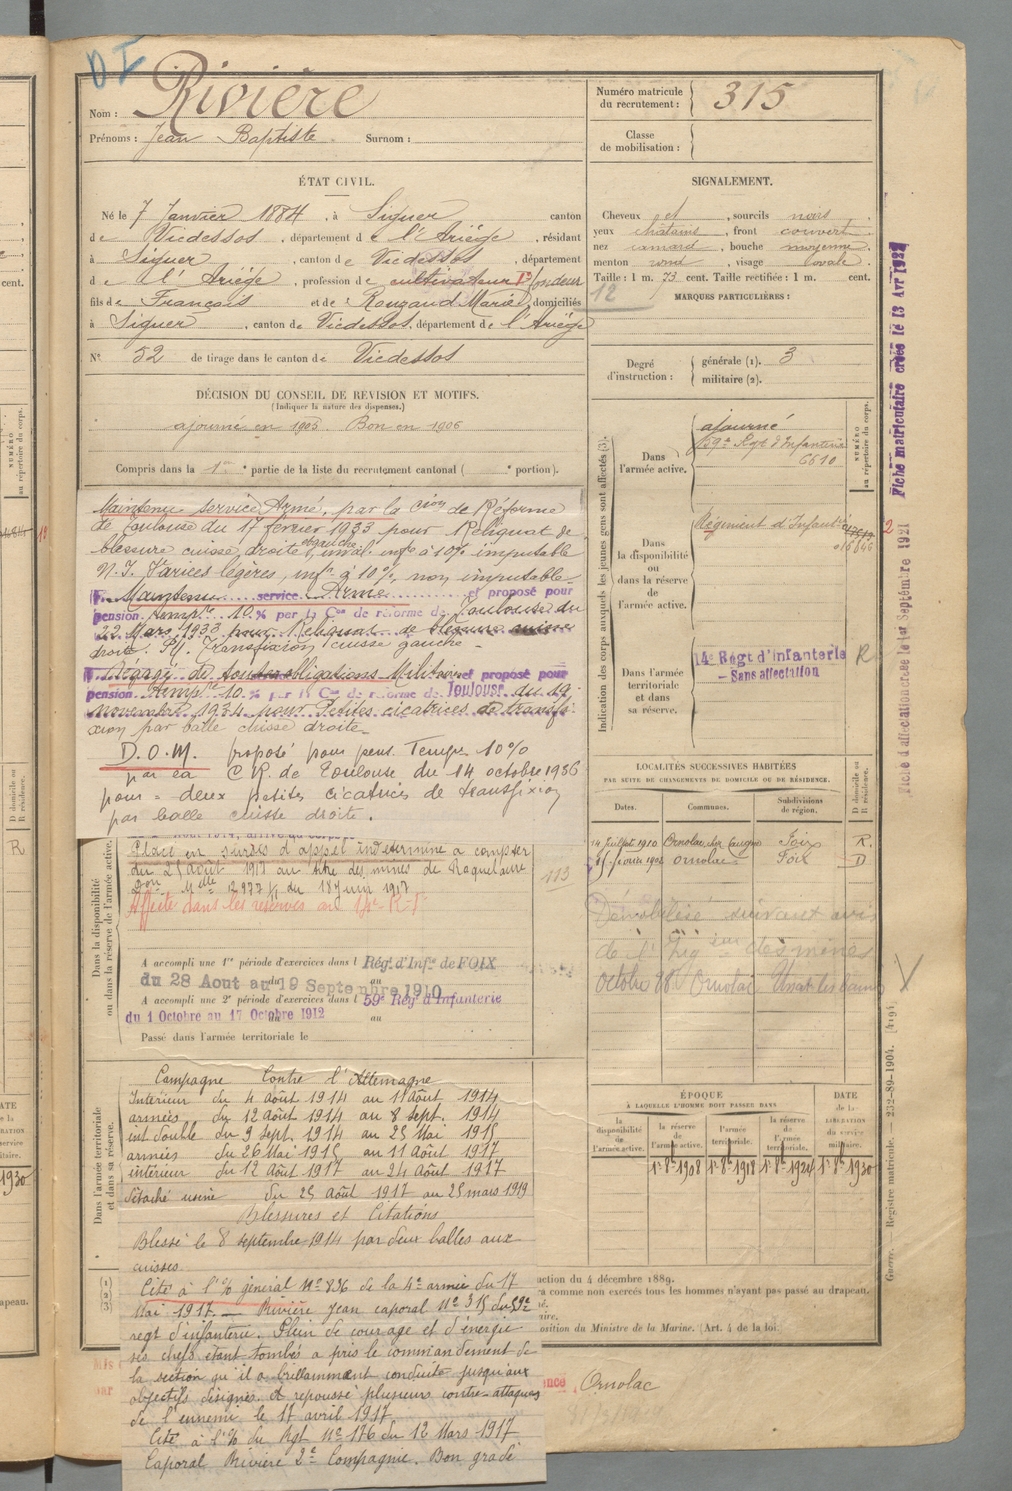 D I
Nom : Rivière
Prénoms : Jean Baptiste Surnom :
ÉTAT CIVIL.
Né le 7 Janvier 1884, à Siguer canton
de Vicdessos, département de l'Ariége, résidant
à Siguer, canton de Vicdessos département
de l'Ariége, profession de cultivateur Ir fondeur
fils de François et de Rouzaud Marie, domiciliés
à Siguer, canton de Vicdessos, département de l'Ariége
N° 52 de tirage dans le canton de Vicdessos
DÉCISION DU CONSEIL DE REVISION ET MOTIFS.
(Indiquer la nature des dispenses.)
ajourné en 1905. Bon en 1906
Compris dans la 1ère partie de la liste du recrutement cantonal ( e portion).
Maintenu service Armé, par la Cion de Réforme
de Toulouse du 17 fevrier 1933 pour Reliquat de
blessure cuisse droite et gauche, inval. infre à 10% imputable
N.I. Varices légères, infre à 10%, non imputable
Maintenu service Armé et proposé pour
pension temp.re 10 % per la Con de réforme de Toulouse du
22 Mars 1933 pour Reliquat de blessure cuisse
droite. Pl. Transfixion cuisse gauche -
Dégagé de toutes obligations Militaires et proposé pour
pension temp.re 10 % par la Con de réforme de Toulouse du 19
novembre 1934 pour Petites cicatrices de transfi-
xion par balle cuisse droite -
D.O.M. proposé pour pens. Temp. 10%
par la C.R. de Toulouse du 14 octobre 1936
pour = deux petites cicatrices de transfixion
par balle cuisse droite.
Dans la disponibilité
ou dans la réserve de l'armée active.
Placé en sursis d'appel indéterminé à compter
du 25 août 1917 au titre des mines de Roquelaure
Don Melle 12977 K du 18 Juin 1917
Affecté dans les réserves au 14e R.I.
113
A accompli une 1re période d'exercices dans l Régt. d'Infie de FOIX
du 28 Aout au 19 Septembre 1910
A accompli une 2e période d'exercices dans l 59e Régt d'Infanterie
du 1 Octobre au 17 Octobre 1912 au
Passé dans l'armée territoriale le
Dans l'armée territoriale
et dans sa réserve.
Campagne Contre l'Allemagne
Intérieur du 4 Août 1914 au 11 Août 1914
armées du 12 Août 1914 au 8 sept. 1914
int double du 9 sept. 1914 au 25 Mai 1915
armées du 26 Mai 1915 au 11 Août 1917
intérieur du 12 Août 1917 au 24 Août 1917
Détaché usine du 25 Août 1917 au 25 mars 1919
Blessures et Citations
Blessé le 8 septembre 1914 par deux balles aux
cuisses.
Cité à l'% général N° 836 de la 4e armée du 17
Mai 1917. — Rivière Jean caporal N° 315 du 59e
regt d'infanterie. Plein de courage et d'énergie
ses chefs étant tombés a pris le commandement de
la section qu'il a brillamment conduite jusqu'aux
objectifs désignés. A repoussé plusieurs contre-attaques
de l'ennemi le 17 avril 1917
Cité à l'% du Rgt N° 176 du 12 Mars 1917
Caporal Rivière 2e Compagnie. Bon gradé
Numéro matricule
du recrutement : 315
Classe
de mobilisation :
SIGNALEMENT.
Cheveux et, sourcils noirs.
yeux chatains, front couvert
nez camard, bouche moyenne
menton rond, visage ovale.
Taille : 1 m. 73 cent. Taille rectifiée : 1 m. cent.
12
MARQUES PARTICULIÈRES :
Degré
d'instruction :
générale (1). 3
militaire (2).
Indication des corps auxquels les jeunes gens sont affectés (3).
Dans
l'armée active.
ajourné
59e Régt d'Infanterie
6610
NUMÉRO
au répertoire du corps.
Dans
la disponibilité
ou
dans la réserve
de
l'armée active.
Régiment d'Infanterie
Dans l'armée
territoriale
et dans
sa réserve.
14e Régt d'infanterie R
- Sans affectation
LOCALITÉS SUCCESSIVES HABITÉES
PAR SUITE DE CHANGEMENTS DE DOMICILE OU DE RÉSIDENCE.
Dates. Communes. Subdivisions
de région. D domicile ou
R résidence.
14 Juillet 1910 Ornolac Foix R.
Ornolac Foix D
Démobilisé suivant avis
de l'Ing des mines
octobre Ornolac Ussat les bains
ÉPOQUE
À LAQUELLE L'HOMME DOIT PASSER DANS
DATE
de la
LIBÉRATION
du service
militaire.
la
disponibilité
de
l'armée active.
la réserve
de
l'armée active.
l'armée
territoriale.
la réserve
de
l'armée
territoriale.
1er 8bre 1908 1er 8bre 1918 1er 8bre 1924 1er 8bre 1930
(1)
(2)
(3)
uction du 4 décembre 1889.
ra comme non exercés tous les hommes n'ayant pas passé au drapeau.
osition du Ministre de la Marine. (Art. 4 de la loi
ence Ornolac
Fiche matriculaire créée le 13 Avr 1937
Fiche d'affectation créée le 1er Septembre 1921
Guerre. — Registre matricule. — 232-89-1904. [419]